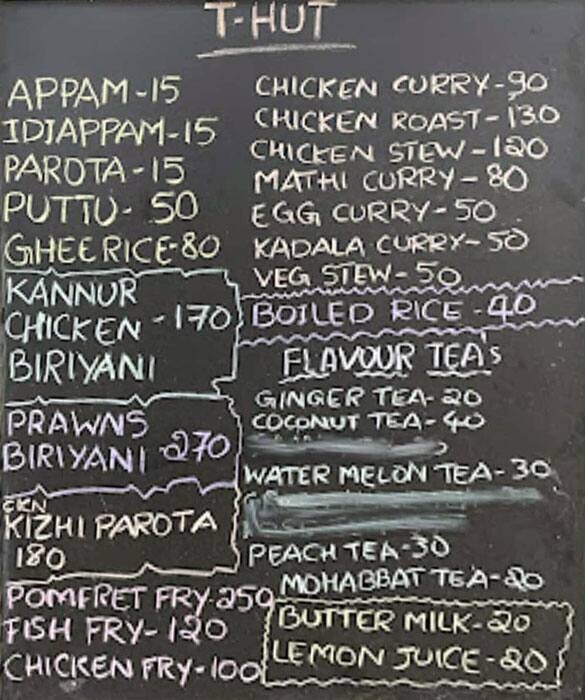 T-HUT
APPAM-15
IDIAPPAM-15
PAROTA-15
PUTTU-50
GHEE RICE-80
KANNUR
CHICKEN -170
BIRIYANI
PRAWNS
BIRIYANI 270
CKN
KIZHI PAROTA
180
POMFRET FRY-250
FISH FRY-120
CHICKEN FRY-100
CHICKEN CURRY-90
CHICKEN ROAST-130
CHICKEN STEW-120
MATHI CURRY-80
EGG CURRY-50
KADALA CURRY-50
VEG STEW-50
BOILED RICE-40
FLAVOUR TEA's
GINGER TEA-20
COCONUT TEA-40
WATER MELON TEA-30
PEACH TEA-30
MOHABBAT TEA-20
BUTTER MILK-20
LEMON JUICE-20